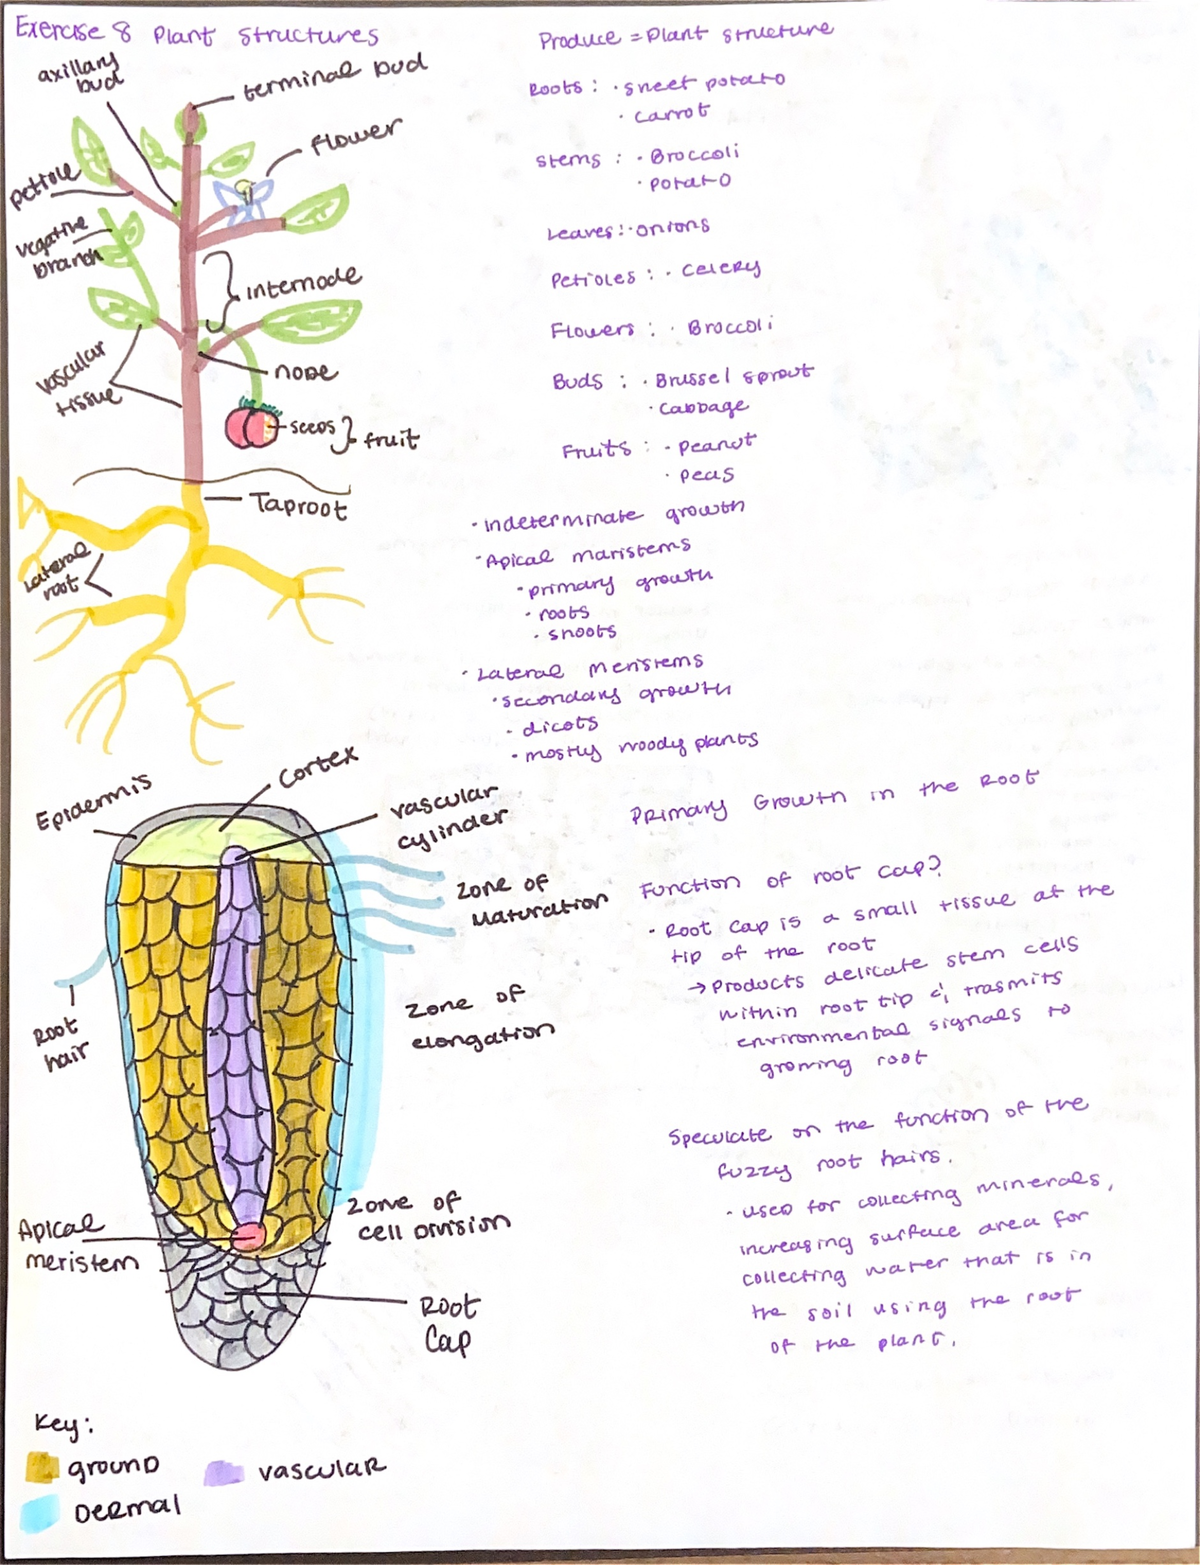 Exercise 8 Plant Structures
axillary
bud
terminal bud
flower
petiole
vegative
branch
internode
vascular
tissue
node
seeds } fruit
Taproot
Lateral
root
Produce = Plant structure
Roots : · sweet potato
· carrot
Stems : · Broccoli
· potato
Leaves : · onions
Petioles : · celery
Flowers : · Broccoli
Buds : · Brussel sprout
· Cabbage
Fruits : · Peanut
· peas
· indeterminate growth
· Apical maristems
· primary growth
· roots
· shoots
· Lateral meristems
· secondary growth
· dicots
· mostly woody plants
Epidermis
Cortex
vascular
cylinder
Zone of
Maturation
Root
hair
Zone of
elongation
Apical
meristem
Zone of
cell division
Root
Cap
Primary Growth in the Root
Function of root cap?
· Root cap is a small tissue at the
tip of the root
→ Products delicate stem cells
within root tip & trasmits
environmental signals to
growing root
Speculate on the function of the
fuzzy root hairs.
· used for collecting minerals,
increasing surface area for
collecting water that is in
the soil using the root
of the plant.
Key:
ground
vascular
Dermal